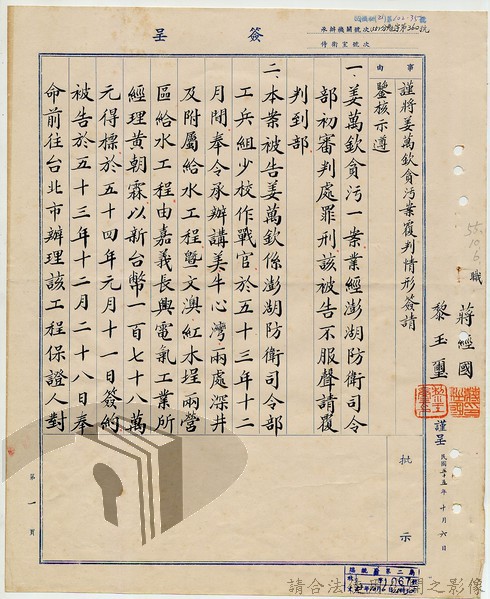 簽呈
承辦機關號次
侍衛室號次
事由
謹將姜萬欽貪污案覆判情形簽請
鑒核示遵
一、姜萬欽貪污一案業經澎湖防衛司令
部初審判處罪刑該被告不服聲請覆
判到部
二、本案被告姜萬欽係澎湖防衛司令部
工兵組少校作戰官於五十三年十二
月間奉令承辦講美牛心灣兩處深井
及附屬給水工程暨文澳紅木埕兩營
區給水工程由嘉義長興電氣工業所
經理黃朝霖以新台幣一百七十八萬
元得標於五十四年元月十一日簽約
被告於五十三年十二月二十八日奉
命前往台北市辦理該工程保證人對
批示
職
蔣經國
黎玉璽
謹呈
民國五十五年十月六日
55.10.6
第一頁
請合法使用
之影像